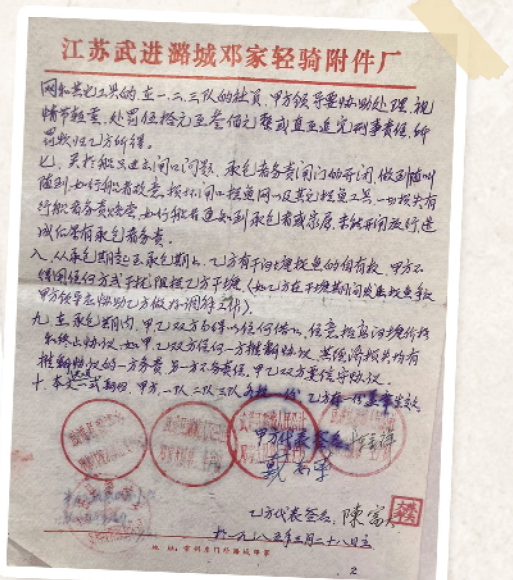 江苏武进潞城邓家轻骑附件厂
网和其它工具的，在一、二、三队的社员，甲方领导要协助处理，视
情节轻重，处罚伍拾元至叁佰元整或直至追究刑事责任，所
罚款归乙方所得。
七、关于船只进出闸口问题，承包者负责闸门的开闭，做到随叫
随到，如行船者故意损坏闸口拦鱼网以及其它拦鱼工具，一切损失有
行船者负责赔偿，如行船者通知到承包者或家属，未能开闸放行，造
成后果有承包者负责。
八、从承包期起至承包期止，乙方有干河塘捉鱼的自有权，甲方不
得用任何方式干扰、阻拦乙方干塘（如乙方在干塘期间发生捉鱼争议
甲方领导应协助乙方做好调解工作）。
九、在承包期内，甲乙双方不得以任何借口，任意抬高河塘价格
和终止协议，如甲乙双方任何一方推翻协议，其经济损失均有
推翻协议的一方负责，另一方不负责任，甲乙双方要信守协议。
十、本文一式四份，甲方一队二队三队各执一份，乙方执一份，盖章生效。
甲方代表签名
乙方代表签名：陈富
于一九八五年三月二十八日立
地址：常州东门外潞城邓家
2